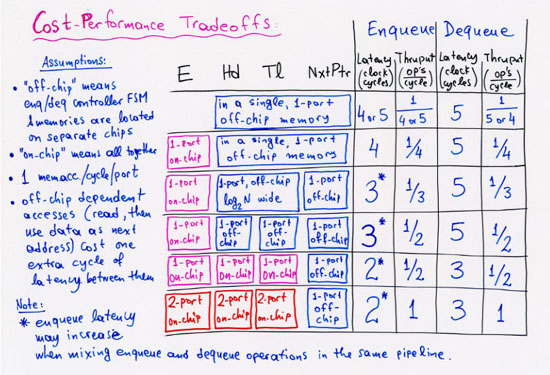 Cost-Performance Tradeoffs:
Enqueue Dequeue
Assumptions:
• "off-chip" means
enq/deq controller FSM
& memories are located
on separate chips
• "on-chip" means all together
• 1 mem acc/cycle/port
• off-chip dependent
accesses (read, then
use data as next
address) cost one
extra cycle of
latency between them
Note:
* enqueue latency
may increase
when mixing enqueue and dequeue operations in the same pipeline.
E Hd Tl NxtPtr Latency (clock cycles) Thruput (op's/cycle) Latency (clock cycles) Thruput (op's/cycle)
in a single, 1-port off-chip memory 4 or 5 1/(4 or 5) 5 1/(5 or 4)
1-port on-chip in a single, 1-port off-chip memory 4 1/4 5 1/4
1-port on-chip 1-port, off-chip log2N wide 1-port off-chip 3* 1/3 5 1/3
1-port on-chip 1-port off-chip 1-port off-chip 1-port off-chip 3* 1/2 5 1/2
1-port on-chip 1-port on-chip 1-port on-chip 1-port off-chip 2* 1/2 3 1/2
2-port on-chip 2-port on-chip 2-port on-chip 1-port off-chip 2* 1 3 1